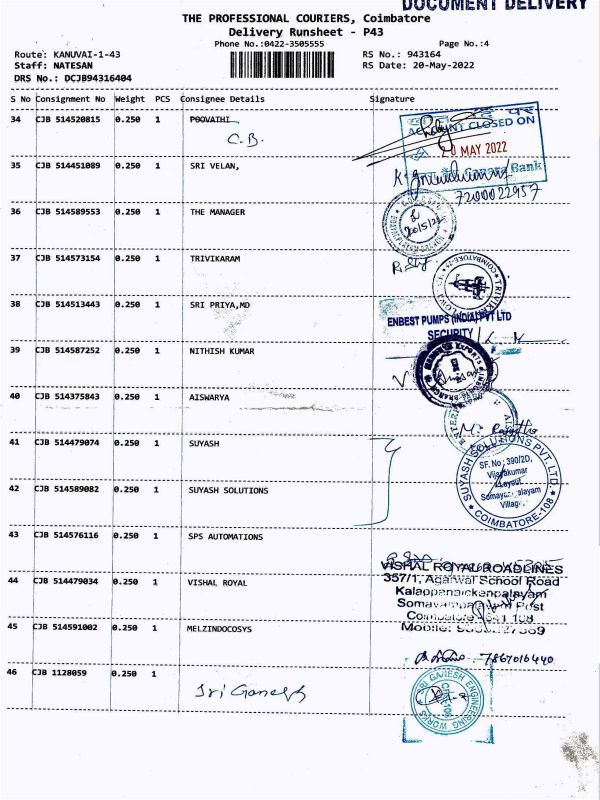 DOCUMENT DELIVERY
THE PROFESSIONAL COURIERS, Coimbatore
Delivery Runsheet - P43
Phone No.:0422-3505555
Page No.:4
Route: KANUVAI-1-43
RS No.: 943164
Staff: NATESAN
RS Date: 20-May-2022
DRS No.: DCJB94316404
S No Consignment No Weight PCS Consignee Details Signature
34 CJB 514520815 0.250 1 POOVATHI
C.B.
ACCOUNT CLOSED ON
20 MAY 2022
Bank
35 CJB 514451089 0.250 1 SRI VELAN,
7200022957
36 CJB 514589553 0.250 1 THE MANAGER
37 CJB 514573154 0.250 1 TRIVIKARAM
38 CJB 514513443 0.250 1 SRI PRIYA,MD
ENBEST PUMPS (INDIA) PVT LTD
SECURITY
39 CJB 514587252 0.250 1 NITHISH KUMAR
40 CJB 514375843 0.250 1 AISWARYA
41 CJB 514479074 0.250 1 SUYASH
SUYASH SOLUTIONS PVT. LTD.
SF. No : 390/2D,
Vijayakumar
Layout
Village
COIMBATORE-108
42 CJB 514589082 0.250 1 SUYASH SOLUTIONS
43 CJB 514576116 0.250 1 SPS AUTOMATIONS
44 CJB 514479034 0.250 1 VISHAL ROYAL
VISHAL ROYAL ROADLINES
357/1, Agarwal School Road
Kalappanaickenpalayam
Post
Coimbatore-641 108
Mobile:
45 CJB 514591002 0.250 1 MELZINDOCOSYS
7867016440
46 CJB 1128059 0.250 1
Sri Ganesh
SRI GANESH ENGINEERING WORKS